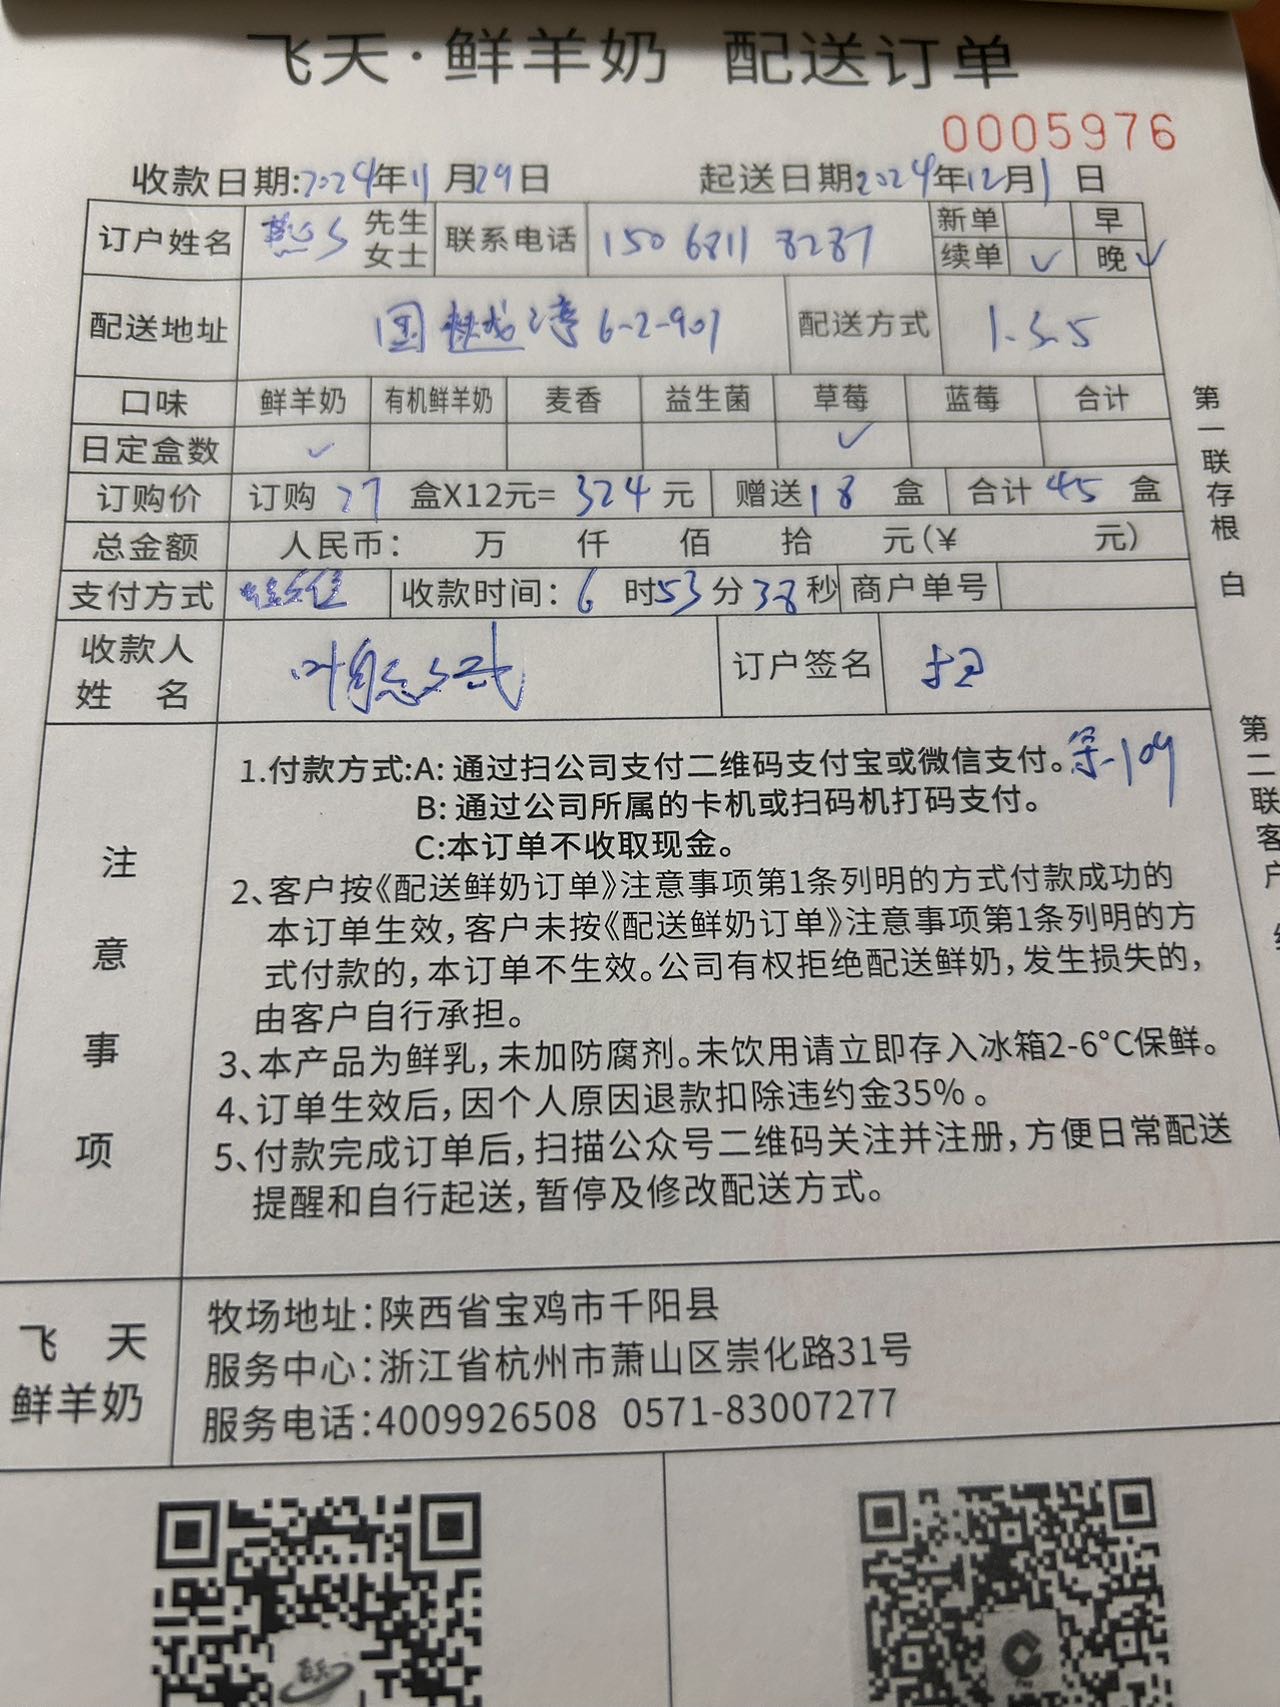 飞天·鲜羊奶 配送订单
0005976
收款日期:2024年11月29日 起送日期2024年12月1日
订户姓名 先生 女士 联系电话 150 6811 8287 新单 早
续单 ✓ 晚 ✓
配送地址 国 湾 6-2-901 配送方式 1.3.5
口味 鲜羊奶 有机鲜羊奶 麦香 益生菌 草莓 蓝莓 合计
日定盒数 ✓ ✓
订购价 订购 27 盒X12元= 324 元 赠送 18 盒 合计 45 盒
总金额 人民币： 万 仟 佰 拾 元(¥ 元)
支付方式 收款时间：6 时 53 分 38 秒 商户单号
收款人
姓 名 叶 订户签名
注意事项
1.付款方式:A: 通过扫公司支付二维码支付宝或微信支付。 -109
B: 通过公司所属的卡机或扫码机打码支付。
C:本订单不收取现金。
2、客户按《配送鲜奶订单》注意事项第1条列明的方式付款成功的
本订单生效，客户未按《配送鲜奶订单》注意事项第1条列明的方
式付款的，本订单不生效。公司有权拒绝配送鲜奶，发生损失的，
由客户自行承担。
3、本产品为鲜乳，未加防腐剂。未饮用请立即存入冰箱2-6°C保鲜。
4、订单生效后，因个人原因退款扣除违约金35%。
5、付款完成订单后，扫描公众号二维码关注并注册，方便日常配送
提醒和自行起送，暂停及修改配送方式。
飞天
鲜羊奶
牧场地址:陕西省宝鸡市千阳县
服务中心:浙江省杭州市萧山区崇化路31号
服务电话:4009926508 0571-83007277
第一联存根 白
第二联客户